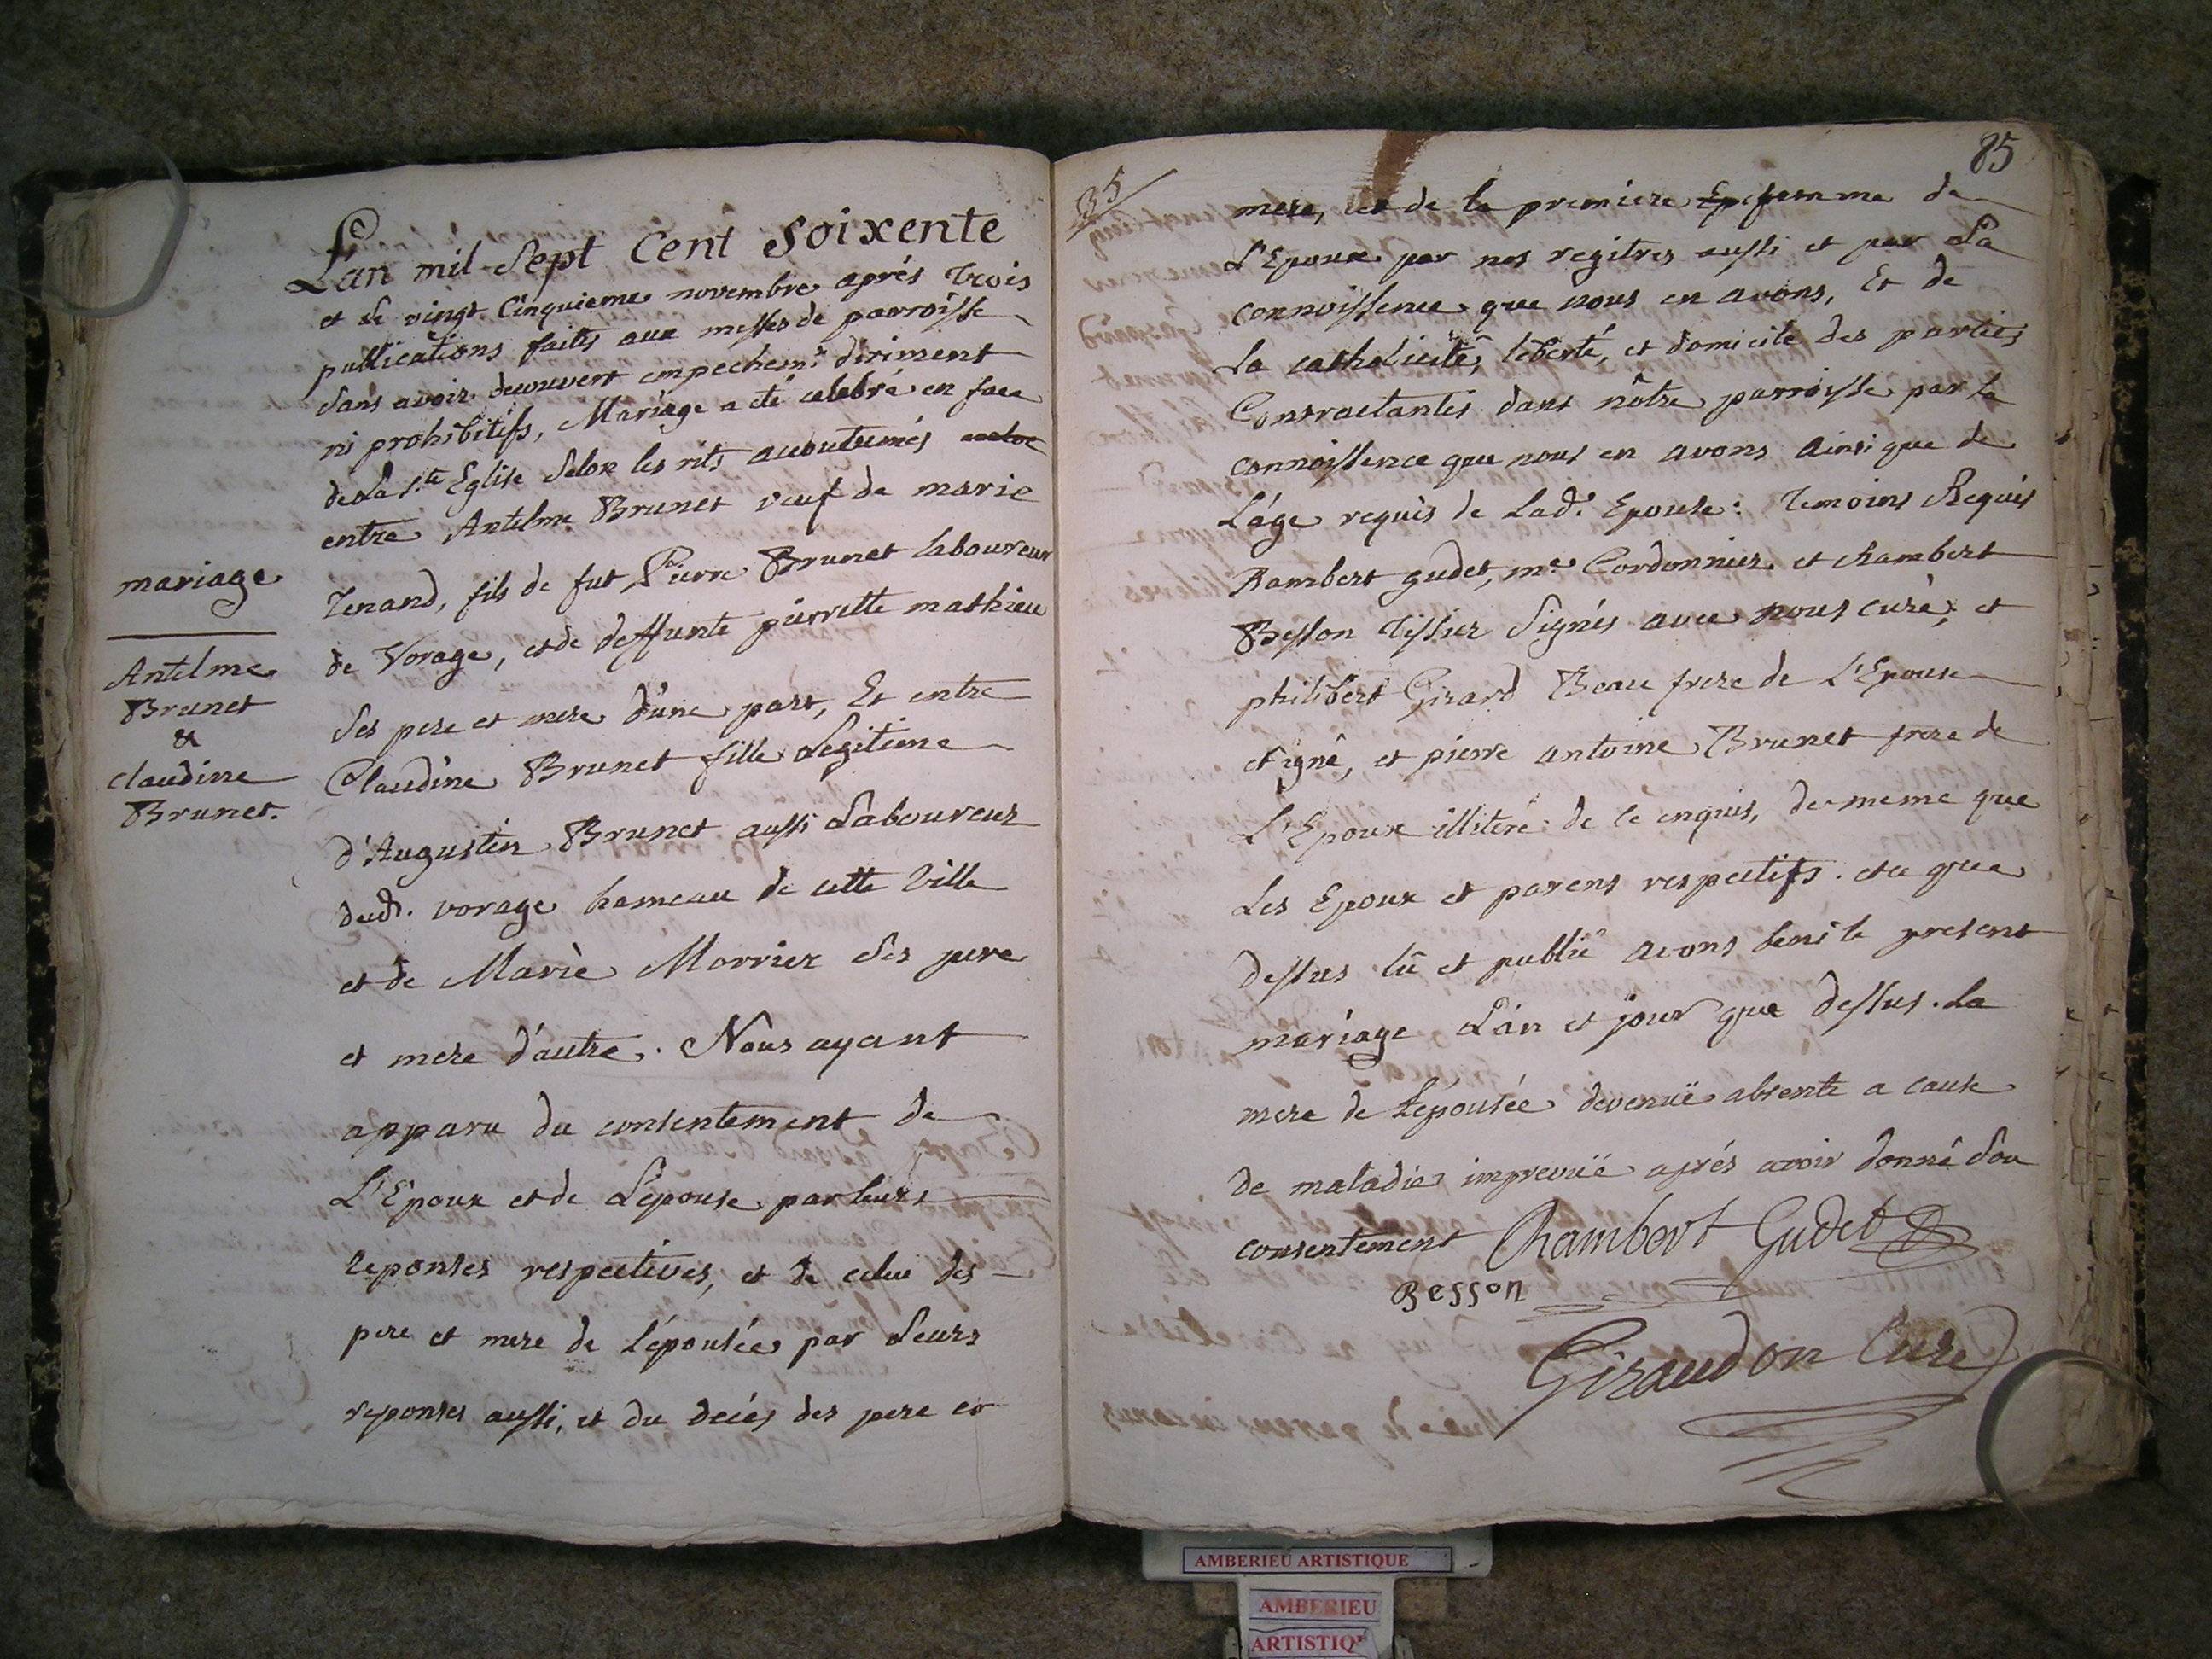 mariage
Antelme
Brunet
&
Claudine
Brunet.
L'an mil Sept Cent Soixente
et Le vingt Cinquieme novembre aprés Trois
publications faites aux messes de parroisse
Sans avoir decouvert empechemt diriment
ni prohibitifs, Mariage a été celebré en face
de La Ste Eglise Selon les rits accoutumés
entre Antelme Brunet veuf de marie
Tenand, fils de fut Pierre Brunet laboureur
de Vorage, et de deffunte pierrette mathieu
Ses pere et mere d'une part, Et entre
Claudine Brunet fille Legitime
d'Augustin Brunet aussi Laboureur
dud. vorage hameau de cette Ville
et de Marie Morrier Ses pere
et mere d'autre. Nous ayant
apparu du consentement de
L'Epoux et de L'epouse par leurs
reponses respectives, et de celui des
pere et mere de L'epousée par Leurs
reponses aussi, et du decés des pere et
35
85
mere, et de la premiere femme de
L'Epoux par nos regitres aussi et par La
connoissence que nous en avons, Et de
La catholicité, liberté, et domicile des parties
Contractantes dans nôtre parroisse par la
connoissence que nous en avons ainsi que de
L'áge requis de Lad. Epouse: Temoins Requis
Rambert gudet, me Cordonnier et Rambert
Besson Tissier Signés avec nous curé, et
philibert Girard Beau frere de L'Epouse
et pierre antoine Brunet frere de
L'Epoux illiteré de ce enquis, de meme que
Les Epoux et parens respectifs. et ce que
dessus lû et publié avons beni le present
mariage L'an et jour que dessus. La
mere de L'epousée devenüe absente a cause
de maladie imprevüe aprés avoir donné Son
consentement Rambert Gudet
Besson
Giraudon Curé
AMBERIEU ARTISTIQUE
AMBERIEU
ARTISTIQ